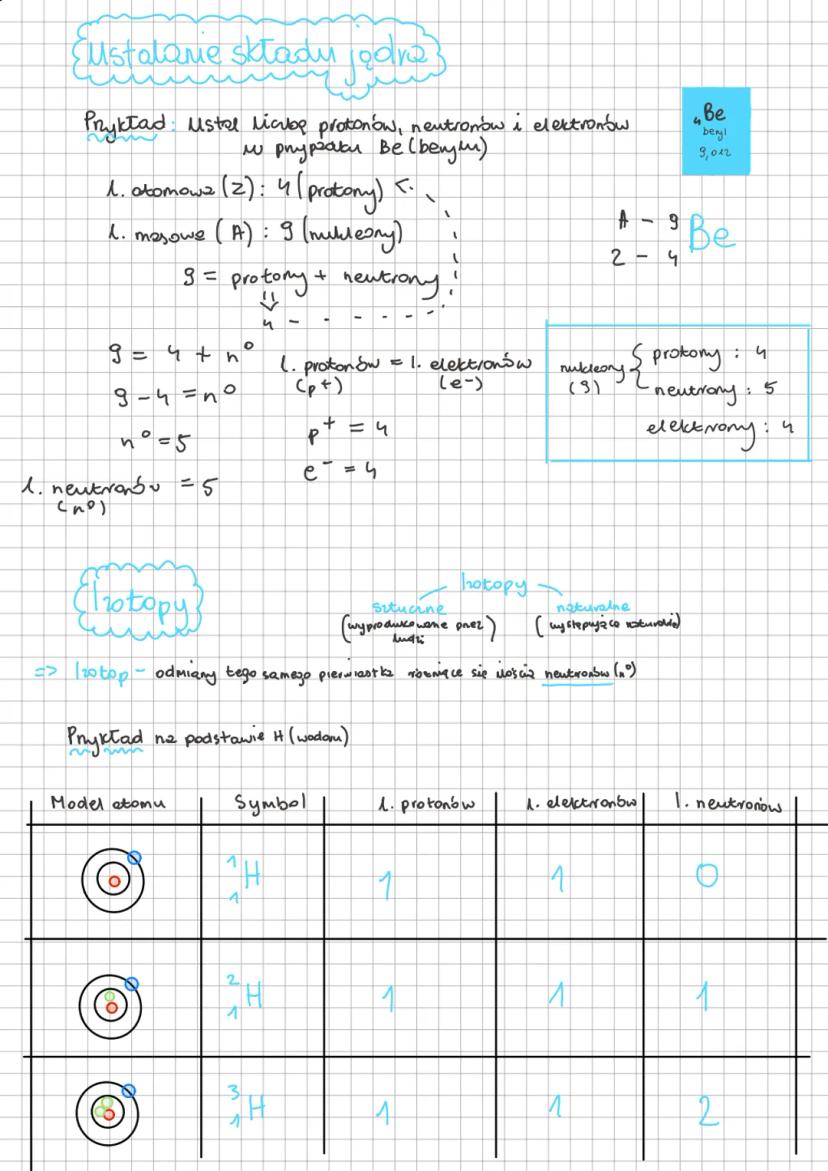 Ustalanie składu jądra
Przykład: Ustal liczbę protonów, neutronów i elektronów
w przypadku Be (berylu)
4Be
beryl
9,012
l. atomowa (Z): 4 (protony)
l. masowa (A) : 9 (nukleony)
9 = protony + neutrony
4
A - 9
Z - 4
Be
9 = 4 + n⁰
9 - 4 = n⁰
n⁰ = 5
l. neutronów = 5
(n⁰)
l. protonów = l. elektronów
(p+) (e-)
p⁺ = 4
e⁻ = 4
nukleony { protony : 4
(9) neutrony : 5
elektrony : 4
Izotopy
Izotopy
sztuczne naturalne
(wyprodukowane przez ludzi)
(występujące naturalnie)
=> Izotop - odmiany tego samego pierwiastka różniące się ilością neutronów (n⁰)
Przykład na podstawie H (wodoru)
Model atomu Symbol l. protonów l. elektronów l. neutronów
¹₁H 1 1 0
²₁H 1 1 1
³₁H 1 1 2